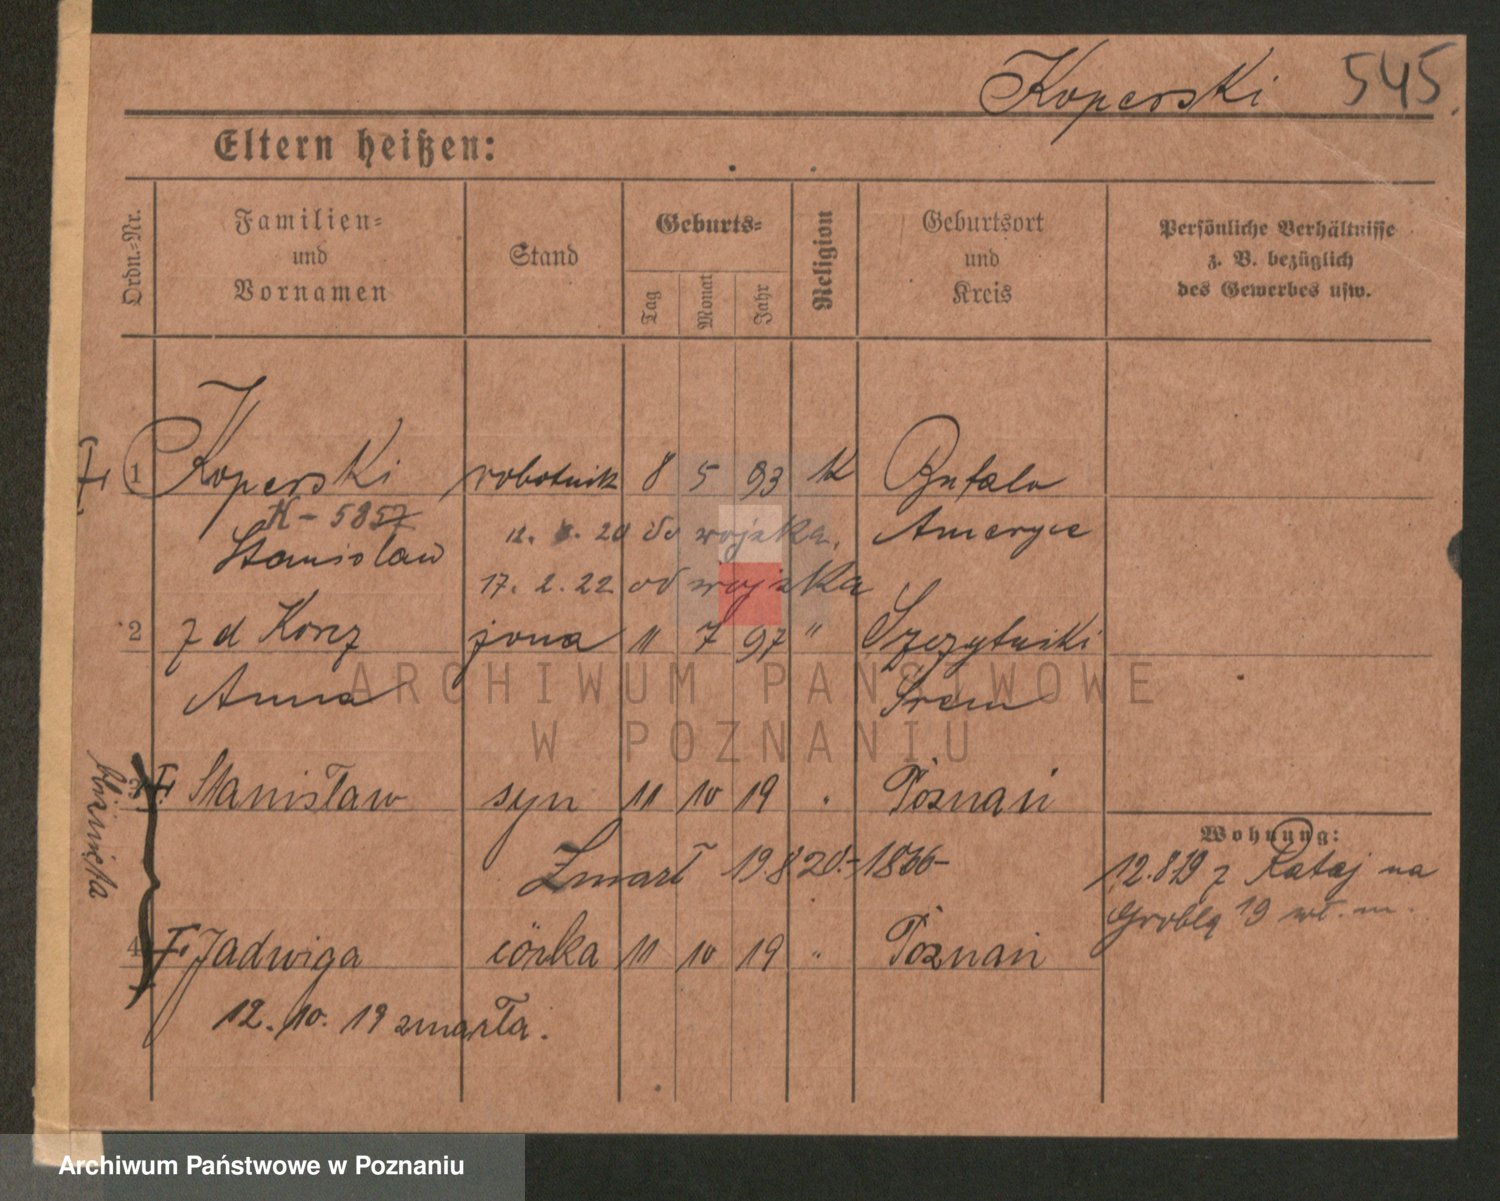 Koperski 545.
Eltern heißen:
Ordn.-Nr.
Familien-
und
Vornamen
Stand
Geburts-
Tag
Monat
Jahr
Religion
Geburtsort
und
Kreis
Persönliche Verhältnisse
z. B. bezüglich
des Gewerbes usw.
1 Koperski robotnik 8 5 93 k Bufalo
K-5857
Stanisław 20 do wojska. Ameryce
17. 2. 22 od wojska
2 z d Korcz żona 11 7 97 " Szczytniki
Anna Śrem
ARCHIWUM PAŃSTWOWE
W POZNANIU
bliźnięta
3 Stanisław syn 11 10 19 " Poznań
Zmarł 19.8 20.-1866-
Wohnung:
12.8 19 z Rataj na
Groblą 19 wł. m.
4 Jadwiga córka 11 10 19 " Poznań
12. 10. 19 zmarła.
Archiwum Państwowe w Poznaniu